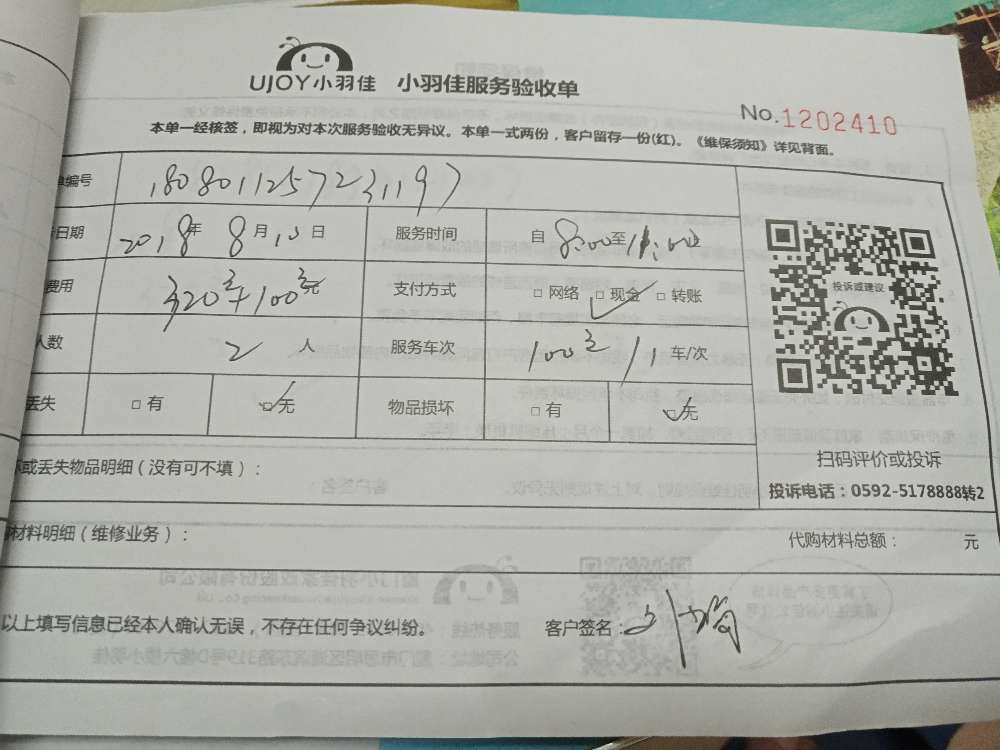 UJOY小羽佳 小羽佳服务验收单
No.1202410
本单一经核签，即视为对本次服务验收无异议。本单一式两份，客户留存一份(红)。《维保须知》详见背面。
编号 1808011257231197
日期 2018年8月10日 服务时间 自8:00至11:00
费用 320元+100元 支付方式 □网络 □现金 □转账
人数 2人 服务车次 100元/1车/次
丢失 □有 □无 物品损坏 □有 □无
投诉或建议
扫码评价或投诉
投诉电话：0592-5178888转2
坏或丢失物品明细（没有可不填）：
材料明细（维修业务）： 代购材料总额： 元
以上填写信息已经本人确认无误，不存在任何争议纠纷。 客户签名：